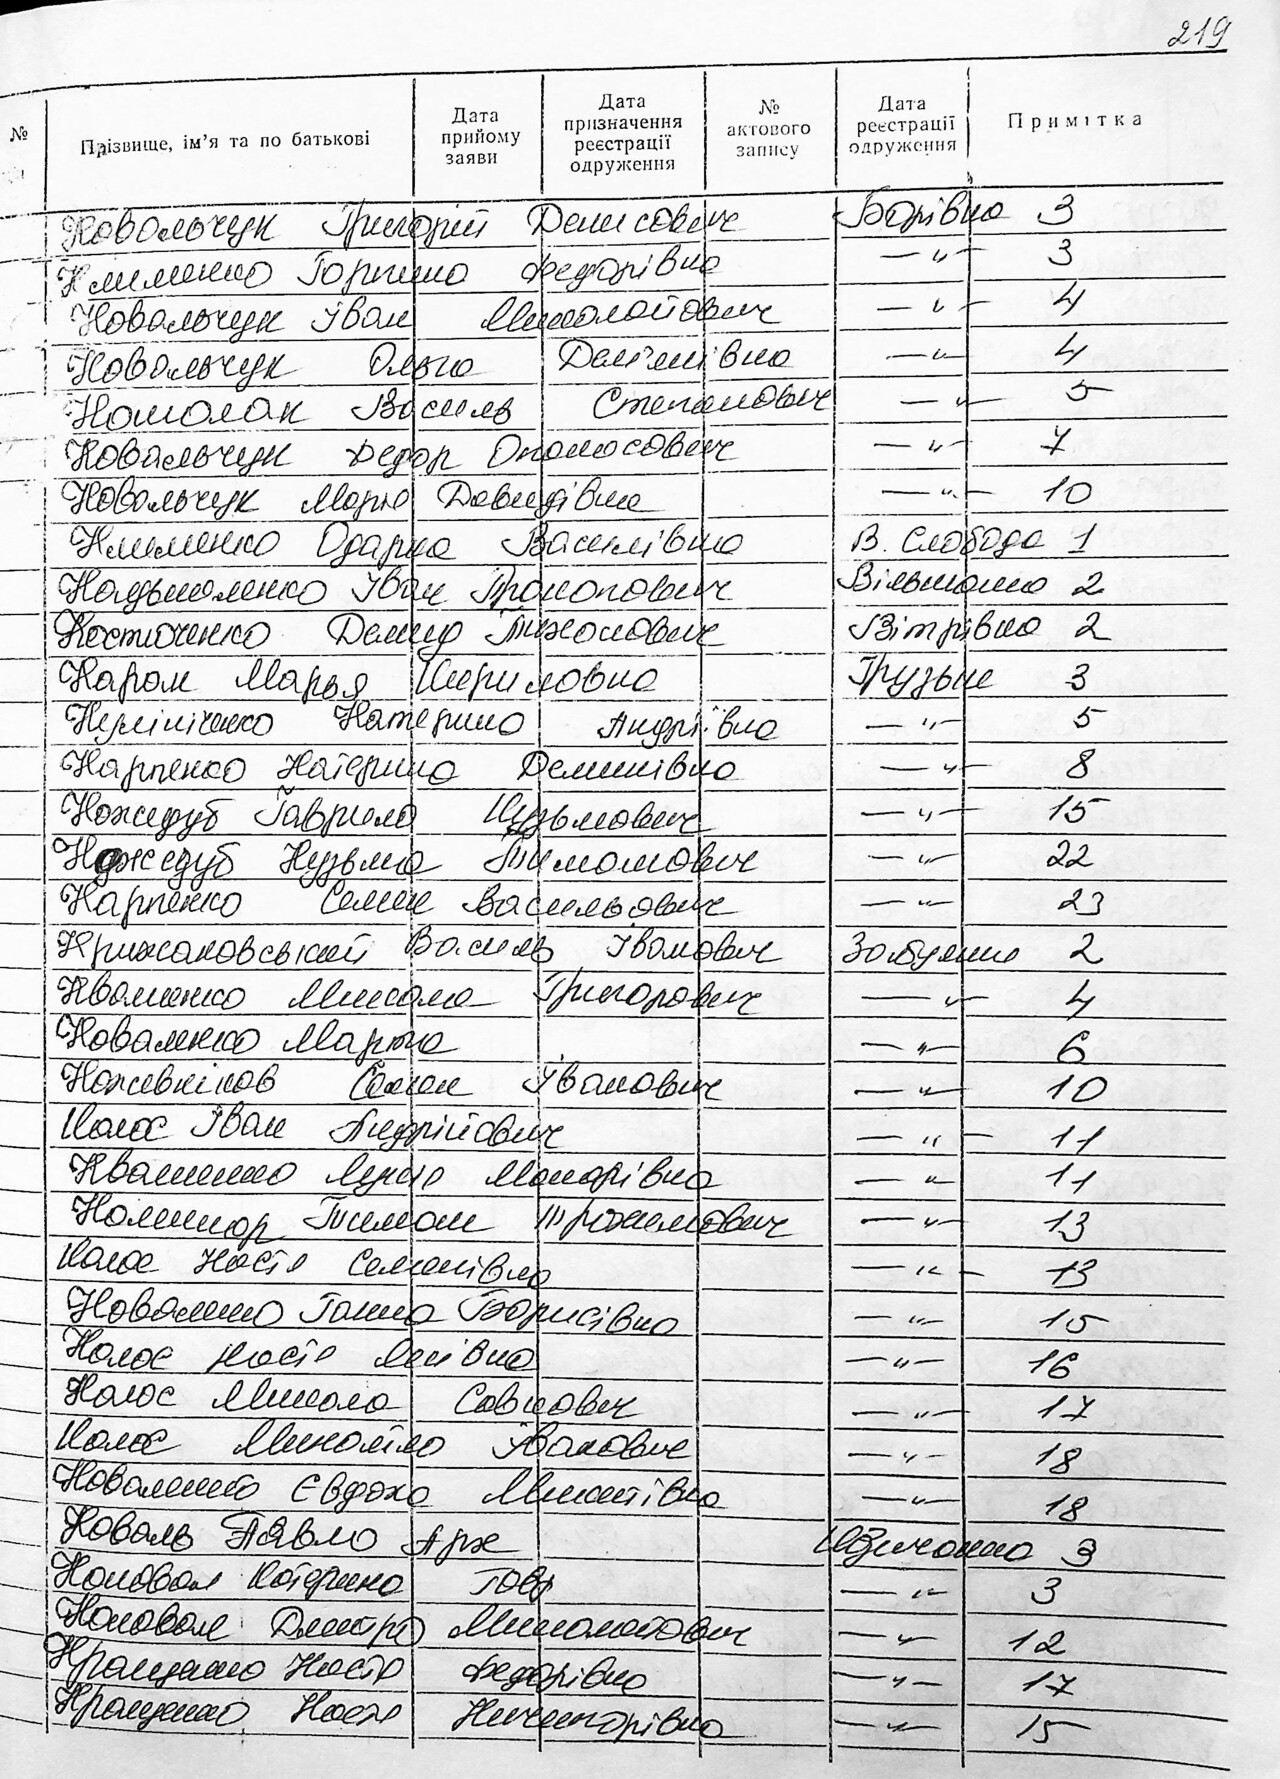 219
№ Прізвище, ім'я та по батькові Дата прийому заяви Дата призначення реєстрації одруження № актового запису Дата реєстрації одруження Примітка
Ковальчук Григорій Денисович Борівка 3
Клименко Горпина Федорівна —"— 3
Ковальчук Іван Миколайович —"— 4
Ковальчук Ольга Дем'янівна —"— 4
Василь Степанович —"— 5
Ковальчук Федор Опанасович —"— 7
Ковальчук Марія Давидівна —"— 10
Клименко Одарка Василівна В. Слобода 1
Іван Прокопович Вільшанка 2
Костюченко Демид Тихонович Вітрівка 2
Марья Кириловна Грузьке 3
Катерина Андріївна —"— 5
Карпенко Катерина Демянівна —"— 8
Кожедуб Гаврило Кузьмович —"— 15
Кожедуб Кузьма Тимонович —"— 22
Карпенко Семен Васильович —"— 23
Крижановський Василь Іванович 2
Кваменко Микола Григорович —"— 4
Коваленко Марта —"— 6
Кожевніков Семен Іванович —"— 10
Колос Іван Андрійович —"— 11
Макарівна —"— 11
Трохимович —"— 13
Колос Настя Семенівна —"— 13
Коваленко Ганна Борисівна —"— 15
Колос Настя —"— 16
Колос Микола Савкович —"— 17
Колос Іванович —"— 18
Коваленко Євдоха Микитівна —"— 18
Коваль Павло Арх 3
Коновал Катерина Гавр —"— 3
Коновал Дмитро Миколайович —"— 12
Настя Федорівна —"— 17
Настя Ничипорівна —"— 15